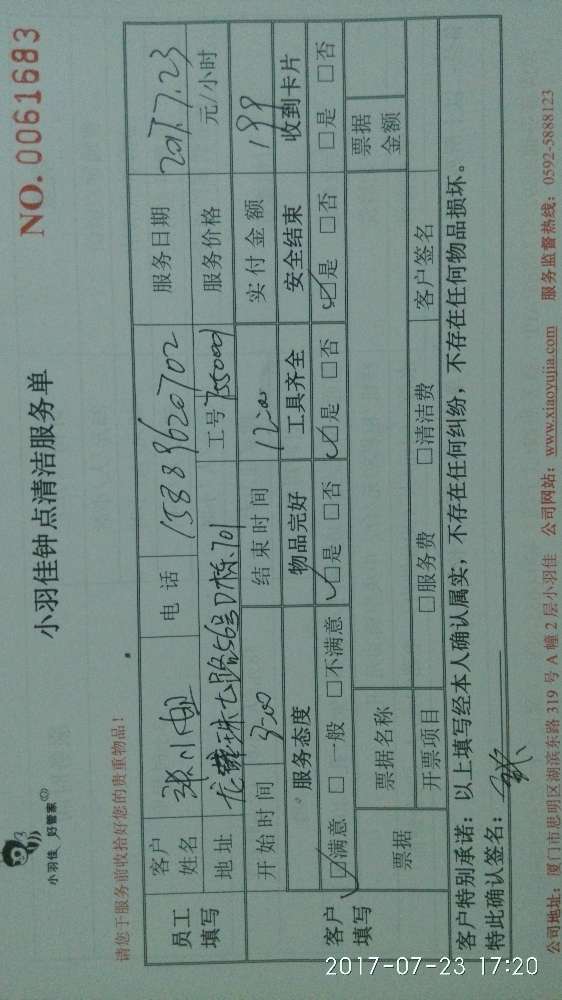 小羽佳 好管家
NO.0061683
小羽佳钟点清洁服务单
请您于服务前收拾好您的贵重物品！
员工填写
客户姓名 张小姐 电话 13889620702 服务日期 2017.7.23
地址 龙 珠七路56号D栋701 工号 服务价格 元/小时
客户填写
开始时间 结束时间 12:00 实付金额 199
服务态度 物品完好 工具齐全 安全结束 收到卡片
☑满意 □一般 □不满意 ☑是 □否 ☑是 □否 ☑是 □否 □是 □否
票据 票据名称 票据金额
开票项目 □服务费 □清洁费 客户签名
客户特别承诺：以上填写经本人确认属实，不存在任何纠纷，不存在任何物品损坏。
特此确认签名：
公司地址：厦门市思明区湖滨东路319号A幢2层小羽佳 公司网站：www.xiaoyujia.com 服务监督热线：0592-5888123
2017-07-23 17:20